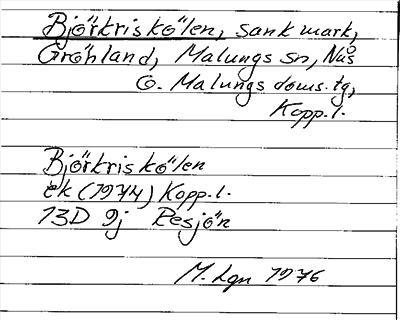 Björkriskölen, sank mark,
Gröhland, Malungs sn, Nås
o. Malungs doms.tg,
Kopp.l.
Björkriskölen
ek (1974) Kopp.l.
13D 9j Resjön
M. Lgn 1976